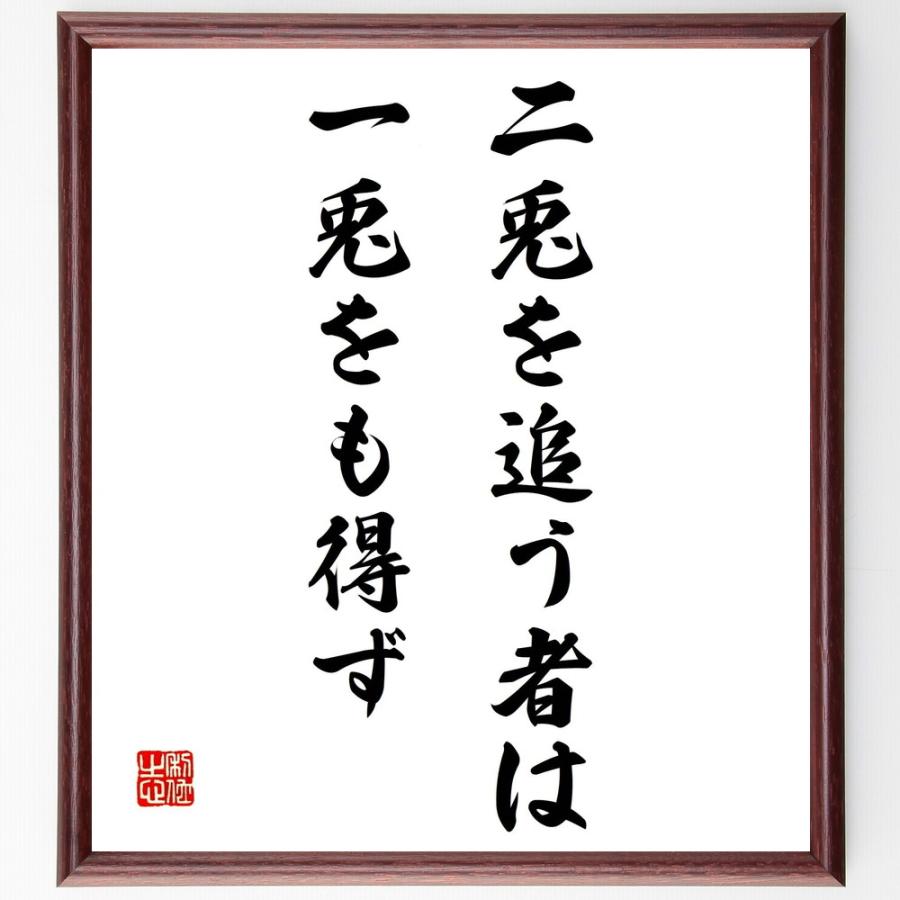 二兎を追う者は
一兎をも得ず